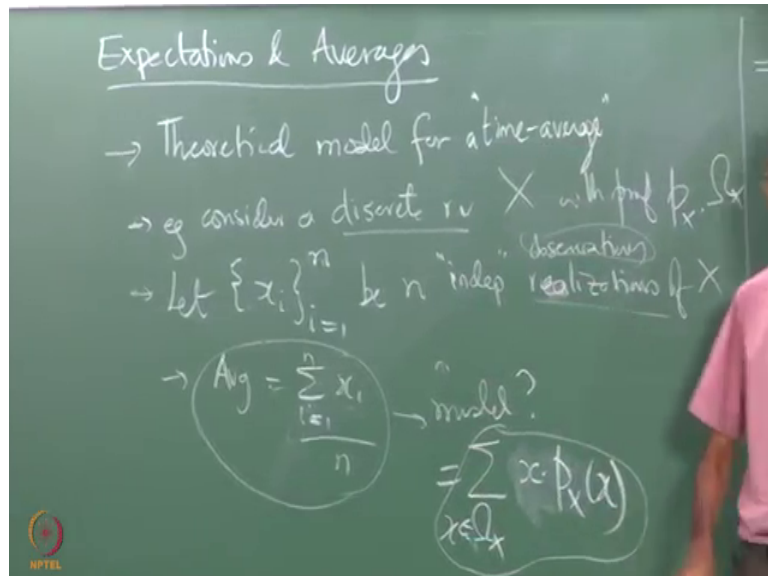 Expectations & Averages
→ Theoretical model for a "time-average"
→ eg consider a discrete rv X with pmf p_X, Ω_X
(observations)
→ Let {x_i}_{i=1}^{n} be n "indep" realizations of X
→ Avg = \frac{\sum_{i=1}^{n} x_i}{n} → "model?
= \sum_{x∈Ω_X} x · p_X(x)
=
NPTEL